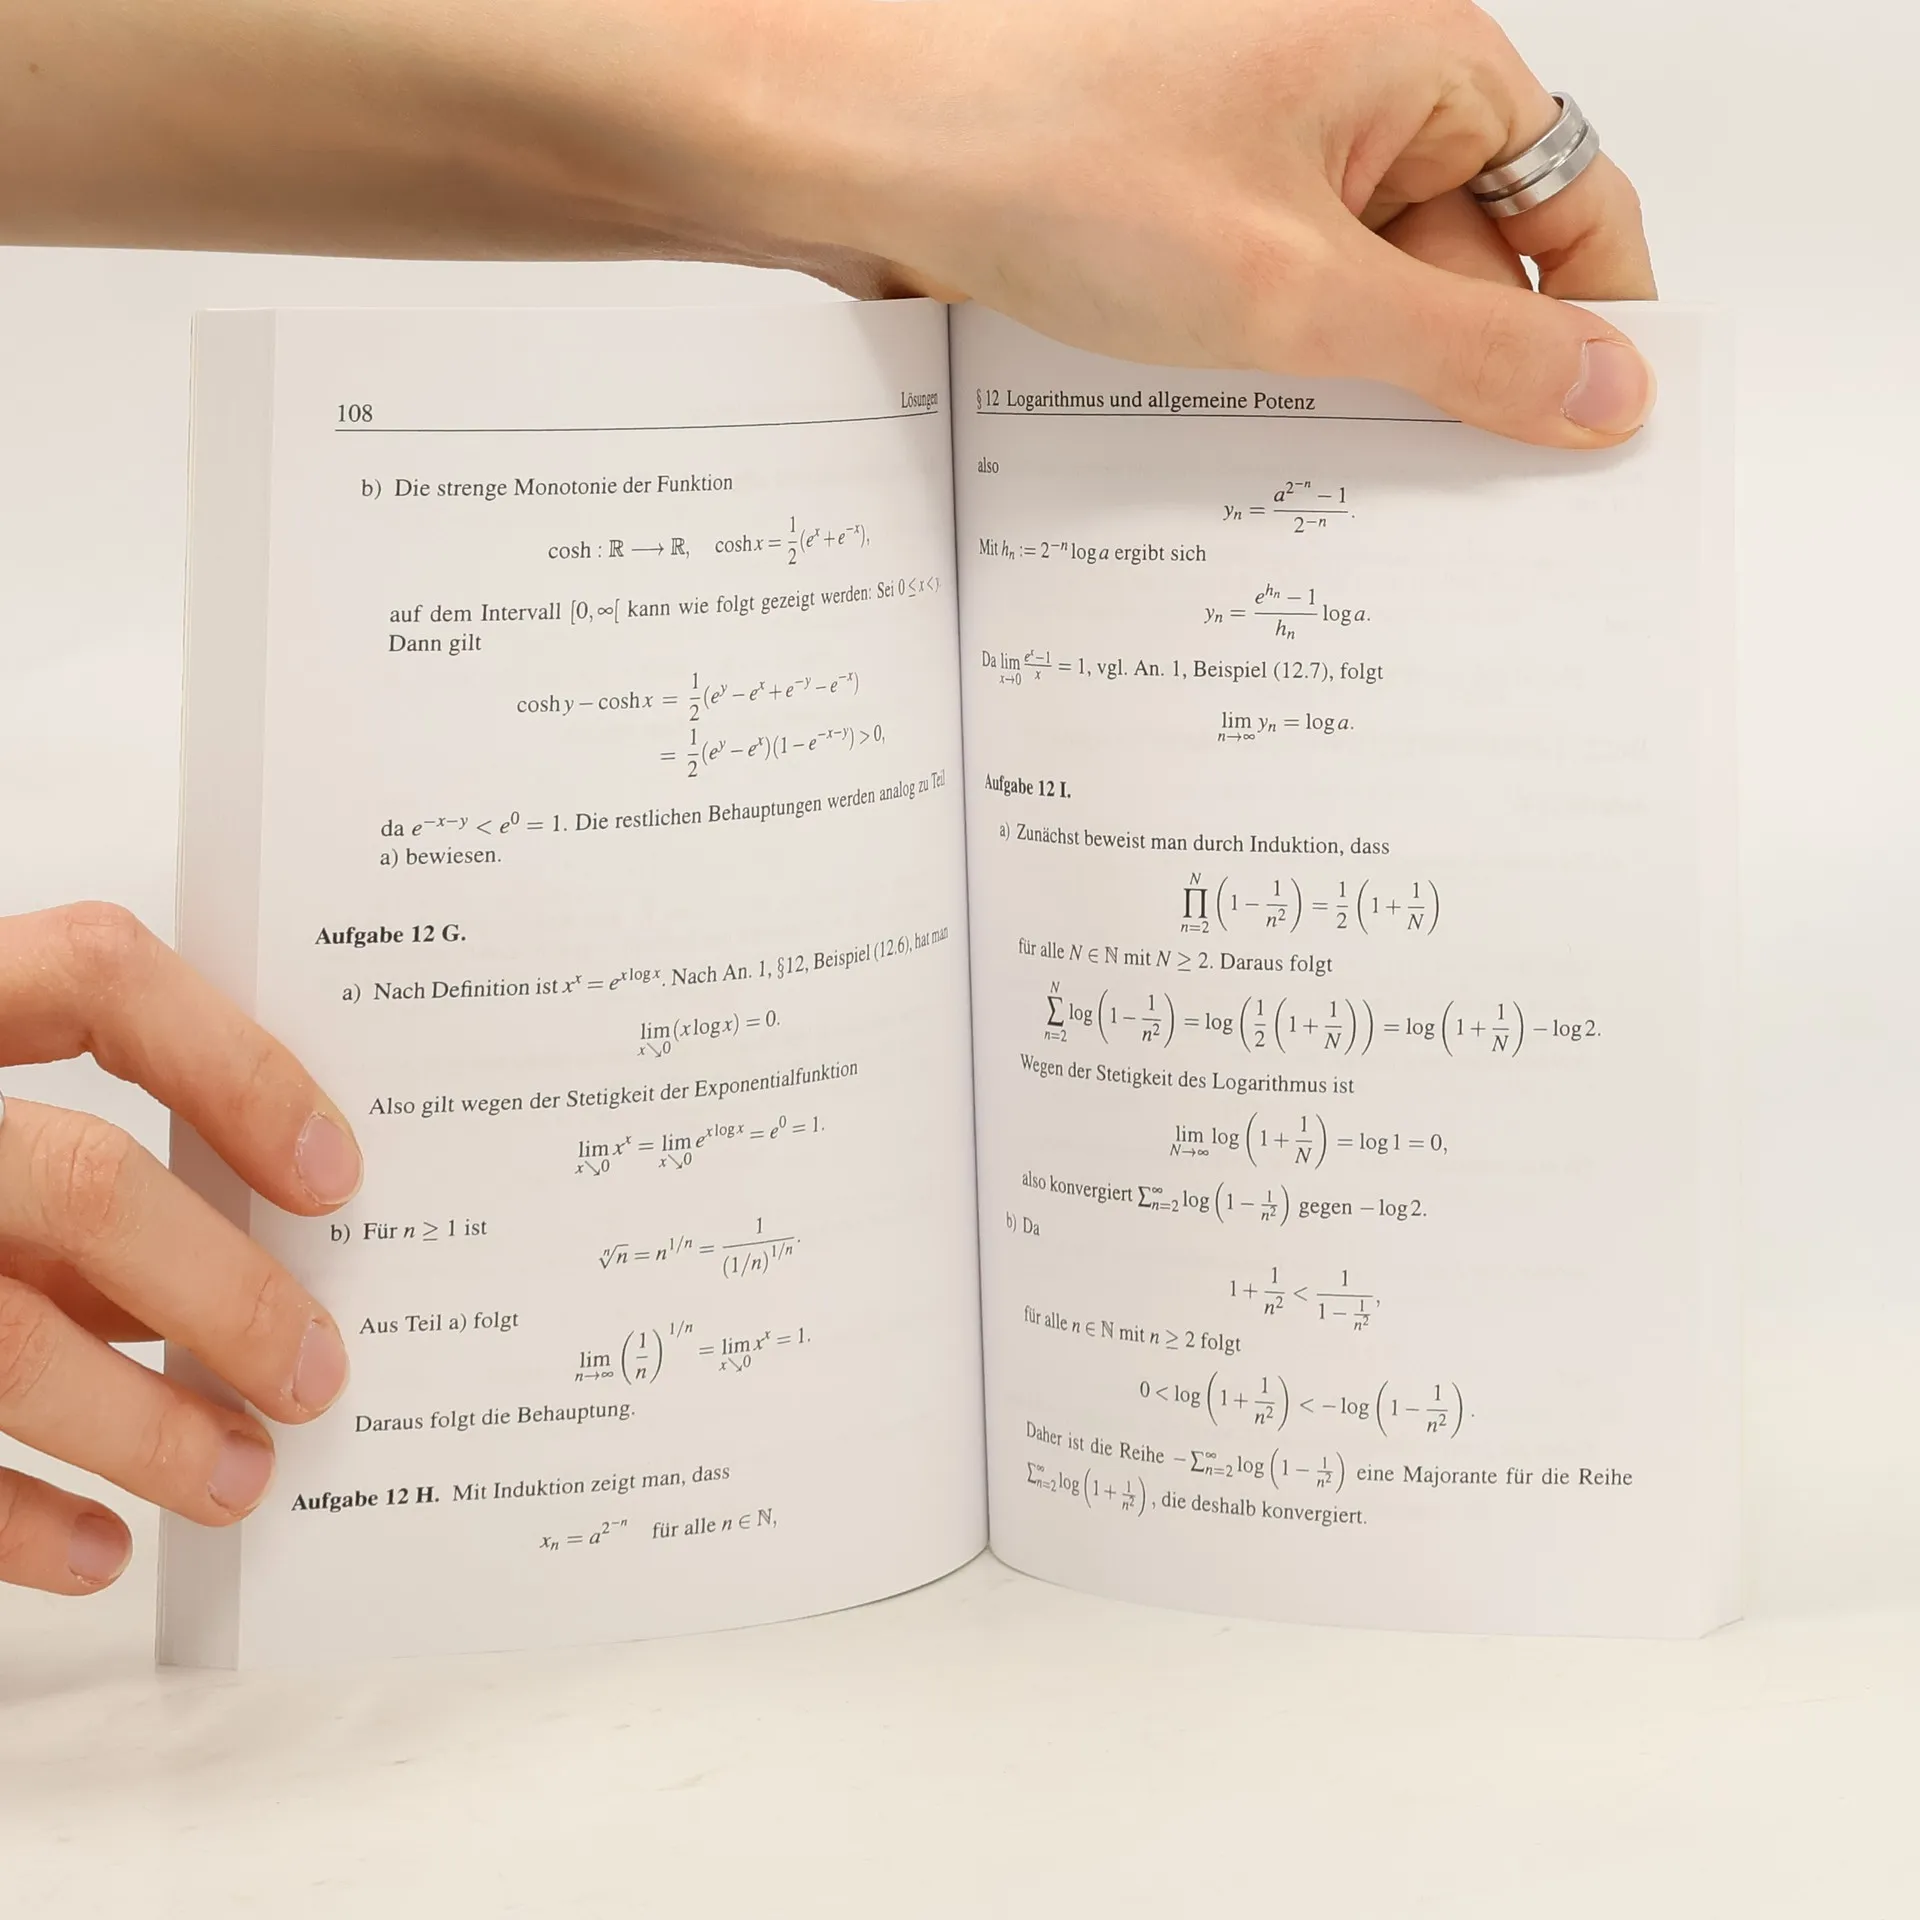 108 Lösungen
b) Die strenge Monotonie der Funktion
cosh : ℝ ⟶ ℝ, cosh x = 1/2 (e^x + e^{-x}),
auf dem Intervall [0, ∞[ kann wie folgt gezeigt werden: Sei 0 ≤ x < y.
Dann gilt
cosh y − cosh x = 1/2 (e^y − e^x + e^{-y} − e^{-x})
= 1/2 (e^y − e^x)(1 − e^{-x-y}) > 0,
da e^{-x-y} < e^0 = 1. Die restlichen Behauptungen werden analog zu Teil
a) bewiesen.
Aufgabe 12 G.
a) Nach Definition ist x^x = e^{x log x}. Nach An. 1, §12, Beispiel (12.6), hat man
lim_{x↘0} (x log x) = 0.
Also gilt wegen der Stetigkeit der Exponentialfunktion
lim_{x↘0} x^x = lim_{x↘0} e^{x log x} = e^0 = 1.
b) Für n ≥ 1 ist
ⁿ√n = n^{1/n} = 1/(1/n)^{1/n}.
Aus Teil a) folgt
lim_{n→∞} (1/n)^{1/n} = lim_{x↘0} x^x = 1.
Daraus folgt die Behauptung.
Aufgabe 12 H. Mit Induktion zeigt man, dass
x_n = a^{2^{-n}} für alle n ∈ ℕ,
§ 12 Logarithmus und allgemeine Potenz
also
y_n = (a^{2^{-n}} − 1)/2^{-n}.
Mit h_n := 2^{-n} log a ergibt sich
y_n = (e^{h_n} − 1)/h_n log a.
Da lim_{x→0} (e^x − 1)/x = 1, vgl. An. 1, Beispiel (12.7), folgt
lim_{n→∞} y_n = log a.
Aufgabe 12 I.
a) Zunächst beweist man durch Induktion, dass
∏_{n=2}^{N} (1 − 1/n²) = 1/2 (1 + 1/N)
für alle N ∈ ℕ mit N ≥ 2. Daraus folgt
∑_{n=2}^{N} log (1 − 1/n²) = log (1/2 (1 + 1/N)) = log (1 + 1/N) − log 2.
Wegen der Stetigkeit des Logarithmus ist
lim_{N→∞} log (1 + 1/N) = log 1 = 0,
also konvergiert ∑_{n=2}^{∞} log (1 − 1/n²) gegen − log 2.
b) Da
1 + 1/n² < 1/(1 − 1/n²),
für alle n ∈ ℕ mit n ≥ 2 folgt
0 < log (1 + 1/n²) < − log (1 − 1/n²).
Daher ist die Reihe − ∑_{n=2}^{∞} log (1 − 1/n²) eine Majorante für die Reihe
∑_{n=2}^{∞} log (1 + 1/n²), die deshalb konvergiert.